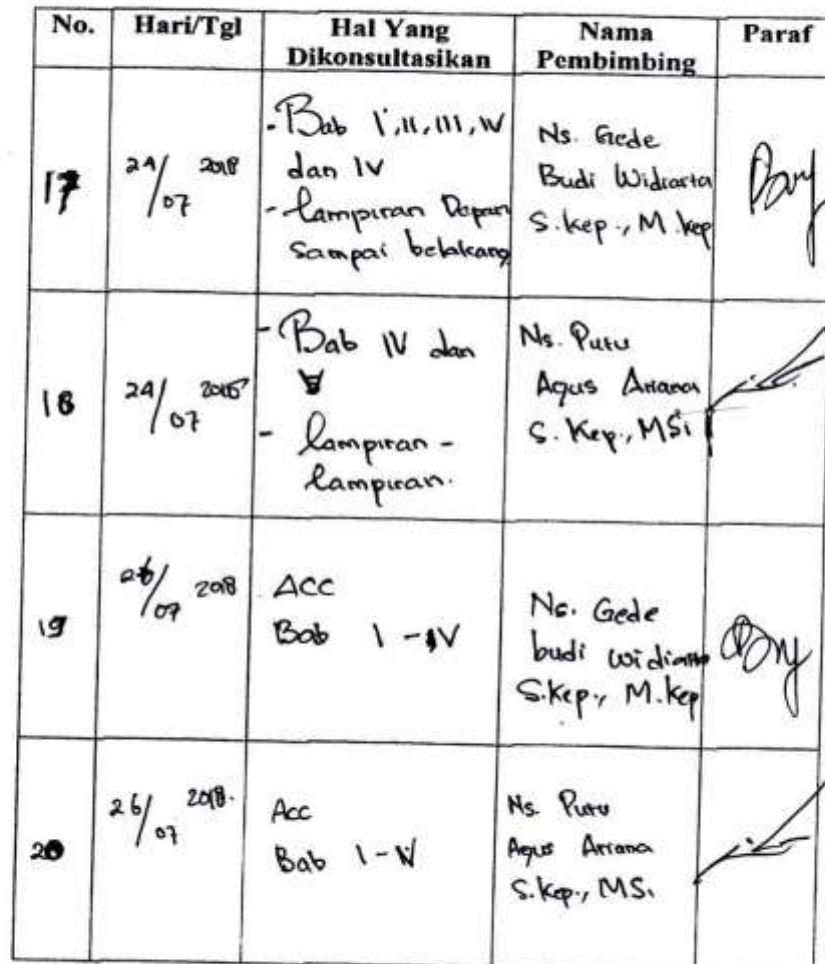 No. Hari/Tgl Hal Yang Dikonsultasikan Nama Pembimbing Paraf
17
24/07 2018
- Bab I, II, III, IV
dan IV
- lampiran Depan
sampai belakang
Ns. Gede
Budi Widiarta
S.kep., M.kep
18
24/07
- Bab IV dan
V
- lampiran -
lampiran.
Ns. Putu
Agus Ariana
S. Kep., MSi
19
26/07 2018
ACC
Bab I - IV
Ns. Gede
budi widiarta
S.kep., M.kep
20
26/07 2018.
Acc
Bab I - V
Ns. Putu
Agus Ariana
S.kep., MSi